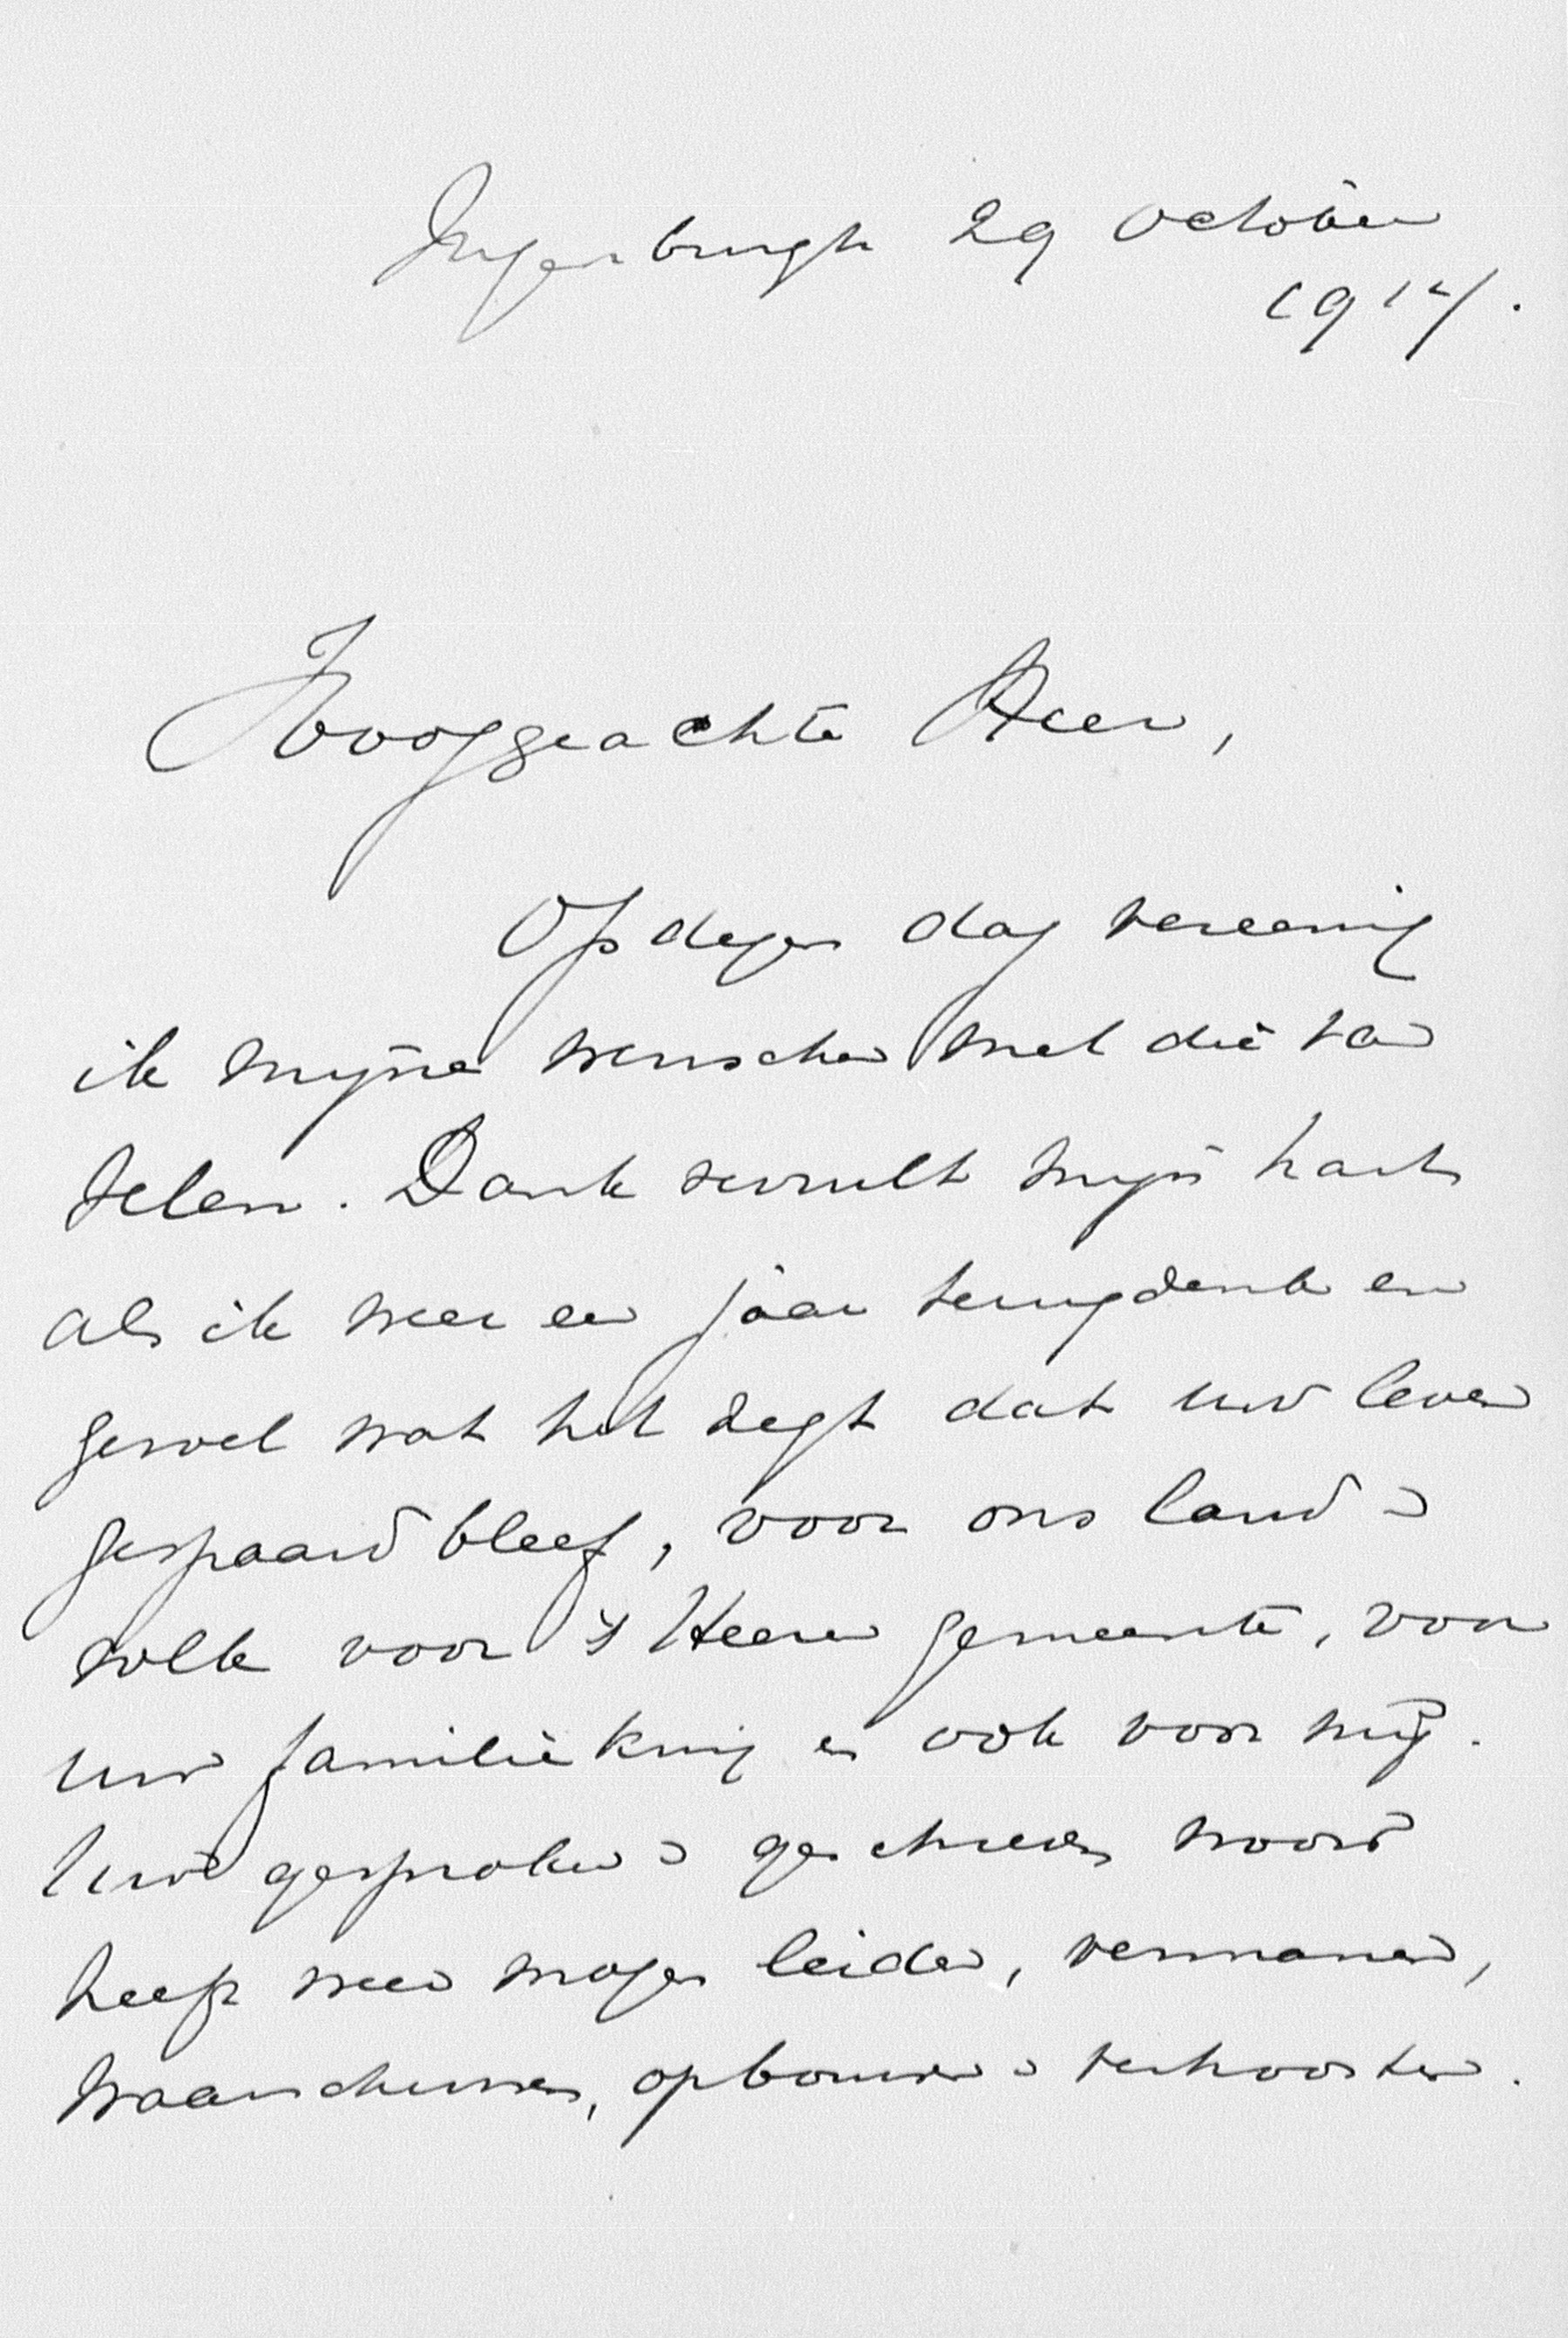 29 October
1914.
Hooggeachte Heer,
Op dezen dag vereenig
ik mijne wenschen met die van
velen. Dank vervult mijn hart
als ik weer een jaar terugdenk en
gevoel wat het zegt dat uw leven
gespaard bleef, voor ons land en
volk voor 's Heeren gemeente, voor
uw familiekring en ook voor mij.
Uw gesproken en geschreven woord
heeft weer mogen leiden, vermanen,
waarschuwen, opbouwen en vertroosten.